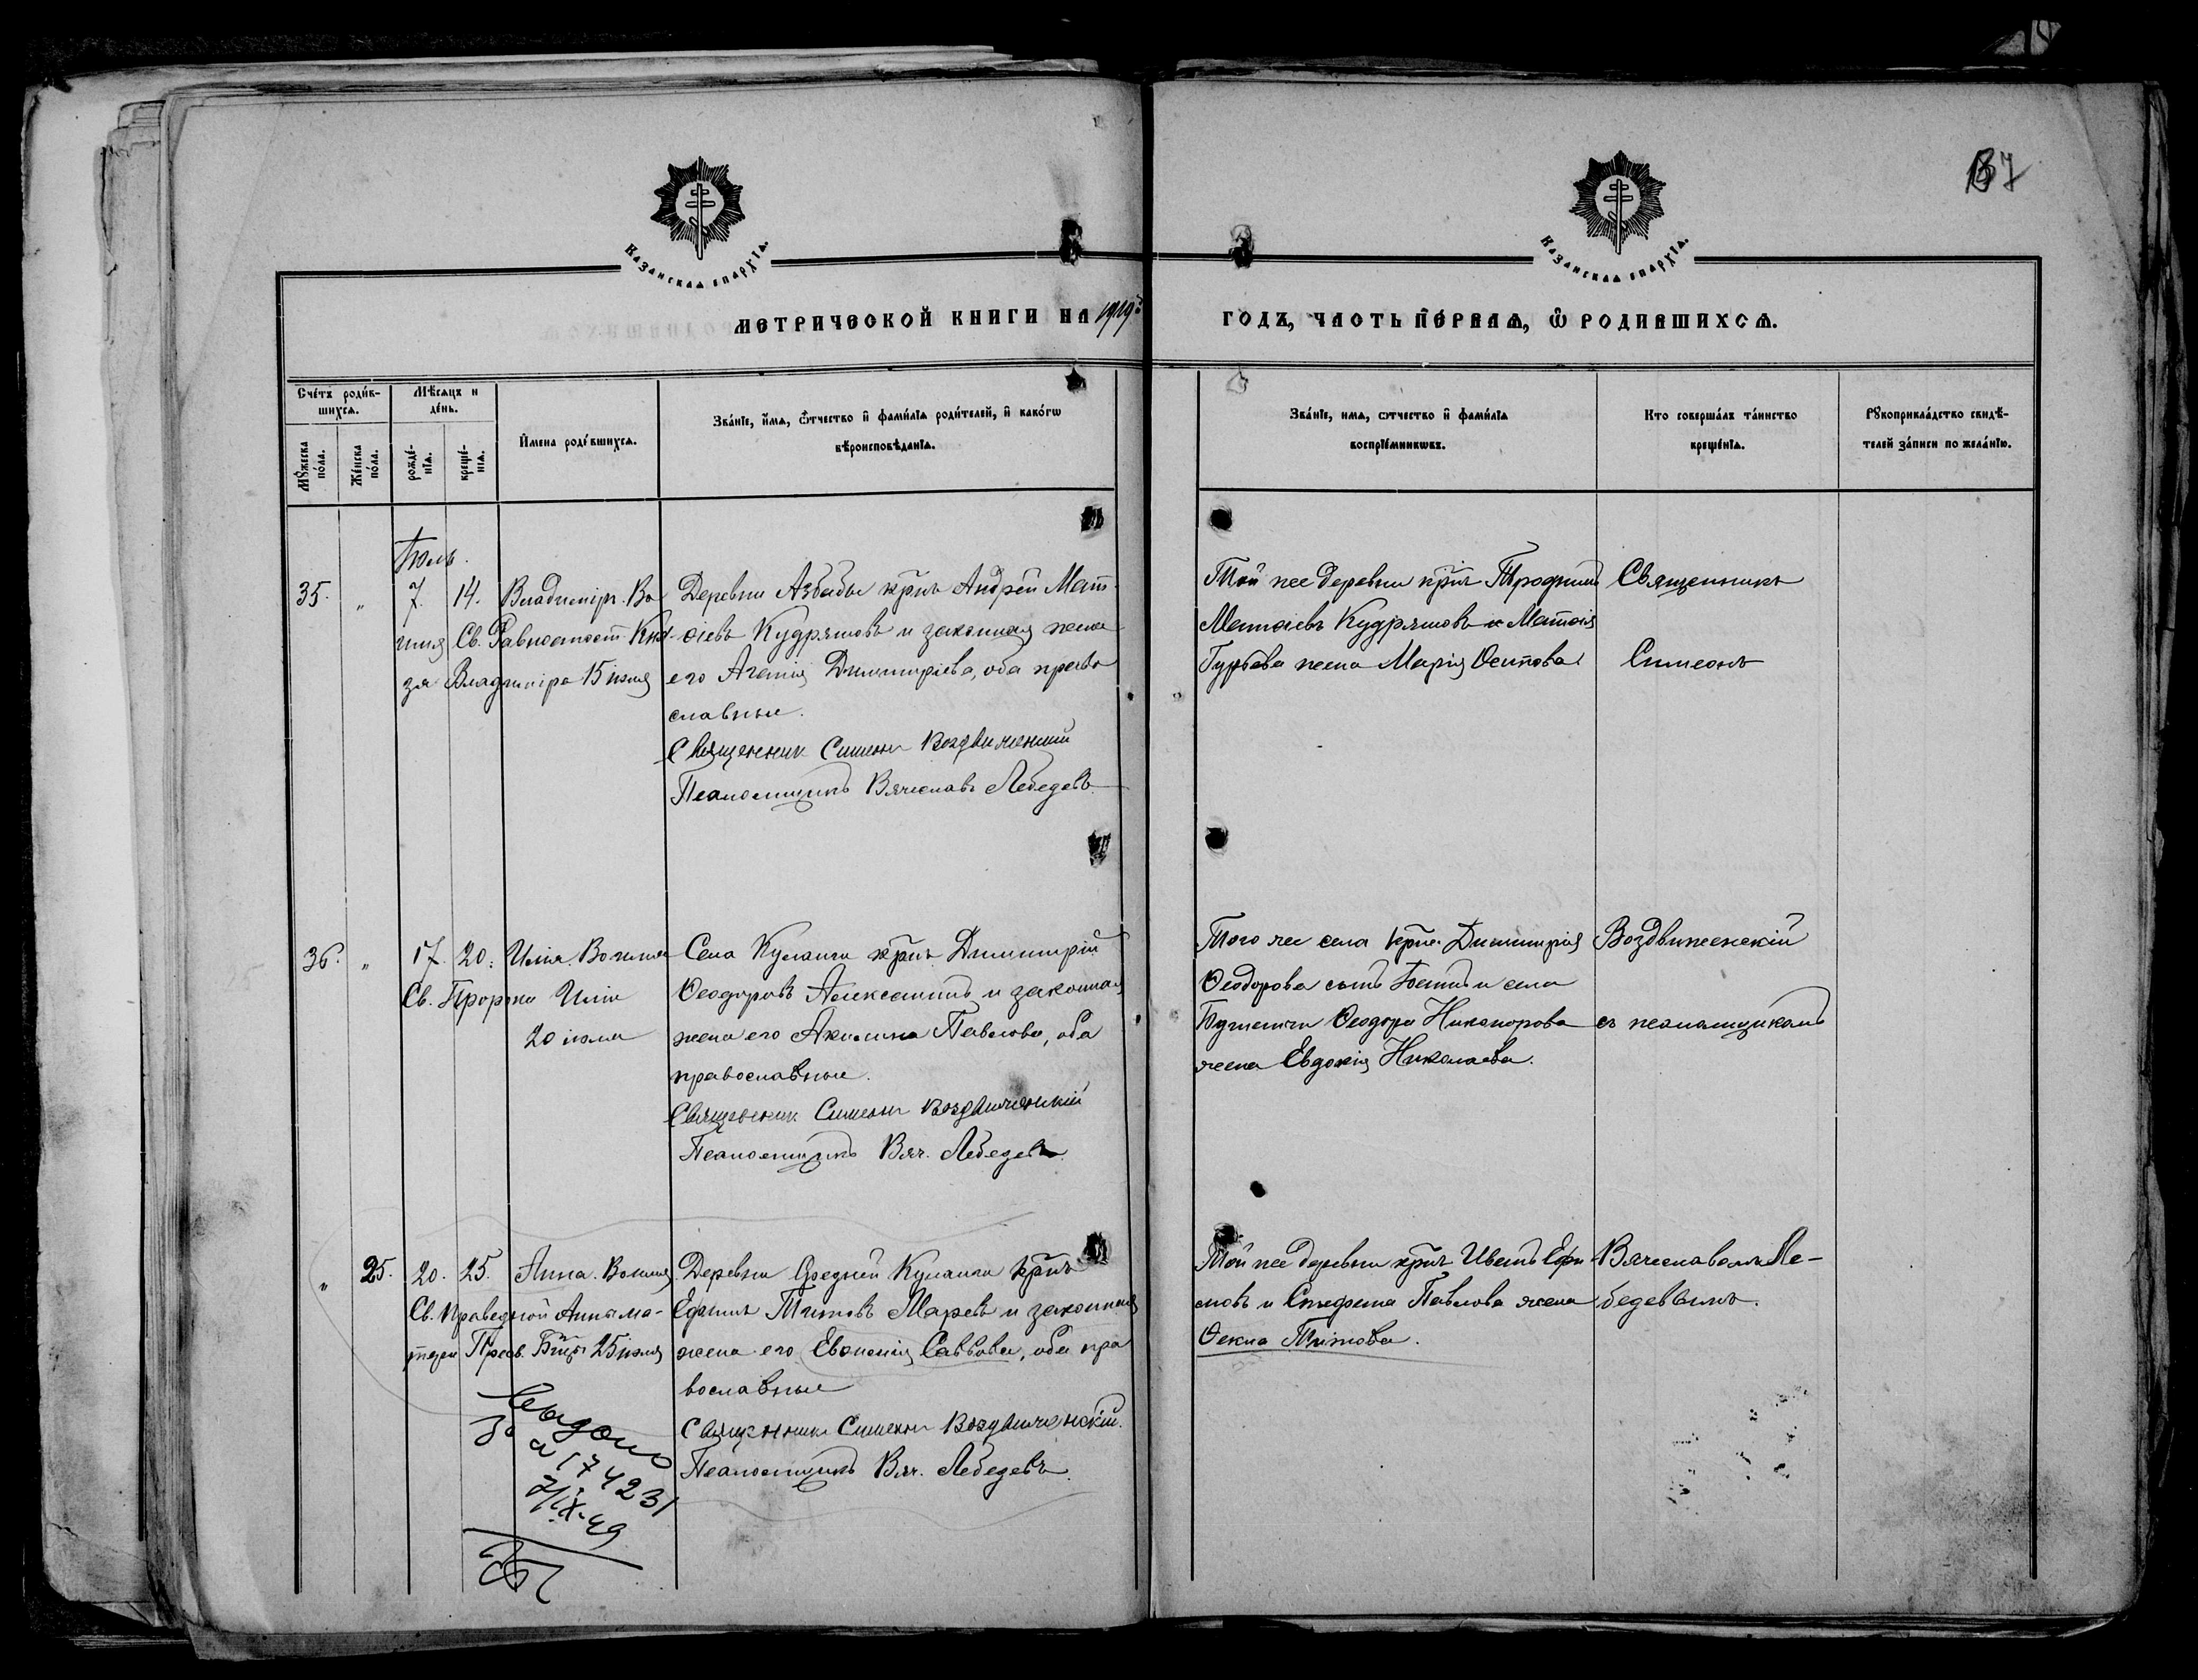 137
Казанская епархїа.
Казанская епархїа.
МЕТРИЧЕСКОЙ КНИГИ НА 1919й ГОДЪ, ЧАСТЬ ПЕРВАЯ, Ѡ РОДИВШИХСЯ.
Счетъ родив-
шихся.
Мѣсяцъ и
день.
Мужеска
пола.
Женска
пола.
рожде-
нїя.
креще-
нїя.
Имена родившихся.
Званїе, имя, ѿчество и фамилїя родителей, и какогѡ
вѣроисповѣданїя.
Званїе, имя, ѿчество и фамилїя
воспрїемникѡвъ.
Кто совершалъ таинство
крещенїя.
Рукоприкладство свидѣ-
телей записи по желанїю.
Іюль.
35. " 7. 14. Владиміръ. Во
имя Св. Равноапост. Кня-
зя Владиміра 15 іюля
Деревни Азбабы крнъ Андрей Мат-
ѳіевъ Кудряшовъ и законная жена
его Агаѳія Димитріева, оба право
славные.
Священник Симеон Воздвиженский
Псаломщикъ Вячеславъ Лебедевъ.
Той же деревни крнъ Трофимъ
Матѳіевъ Кудряшовъ и Матѳія
Гурьева жена Марія Осипова
Священникъ
Симеонъ
36. " 17. 20. Илія. Во имя
Св. Пророка Иліи
20 іюля
Села Куланги крнъ Димитрій
Ѳеодоровъ и законная
жена его Акилина Павлова, оба
православные.
Священник Симеон Воздвиженскій
Псаломщикъ Вяч. Лебедевъ.
Того же села крна Димитрія
Ѳеодорова сынъ и села
Ѳеодора Никанорова
жена Евдокія Николаева.
Воздвиженскій
съ псаломщикомъ
" 25. 20. 25. Анна. Во имя
Св. Праведной Анны ма-
тери Пресв. Бцы 25 іюля
Деревни Средней Куланги крнъ
Ефимъ Титовъ Маревъ и законная
жена его Саввова, оба пра
вославные
Священник Симеон Воздвиженскій.
Псаломщикъ Вяч. Лебедевъ.
Той же деревни крнъ Иванъ Ефи-
мовъ и Стефана Павлова жена
Ѳекла Титова.
Вячеславомъ Ле-
бедевымъ.
Выдано
за 174231
7/IX-49